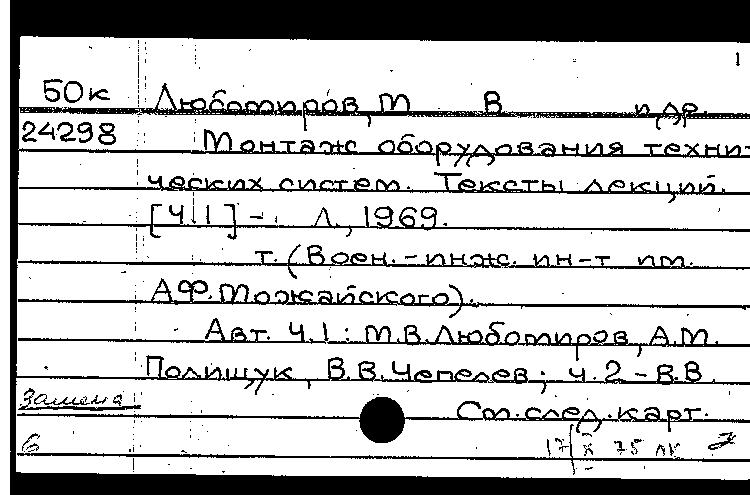 1
50к Любомиров, М В и др.
24298 Монтаж оборудования техни-
ческих систем. Тексты лекций.
[Ч.1] - . Л., 1969.
т. (Воен.-инж. ин-т им.
А.Ф.Можайского).
Авт. Ч.1: М.В.Любомиров, А.М.
Полищук, В.В.Чепелев; ч.2 - В.В.
Замена См.след.карт.
6 17/X 75 лк